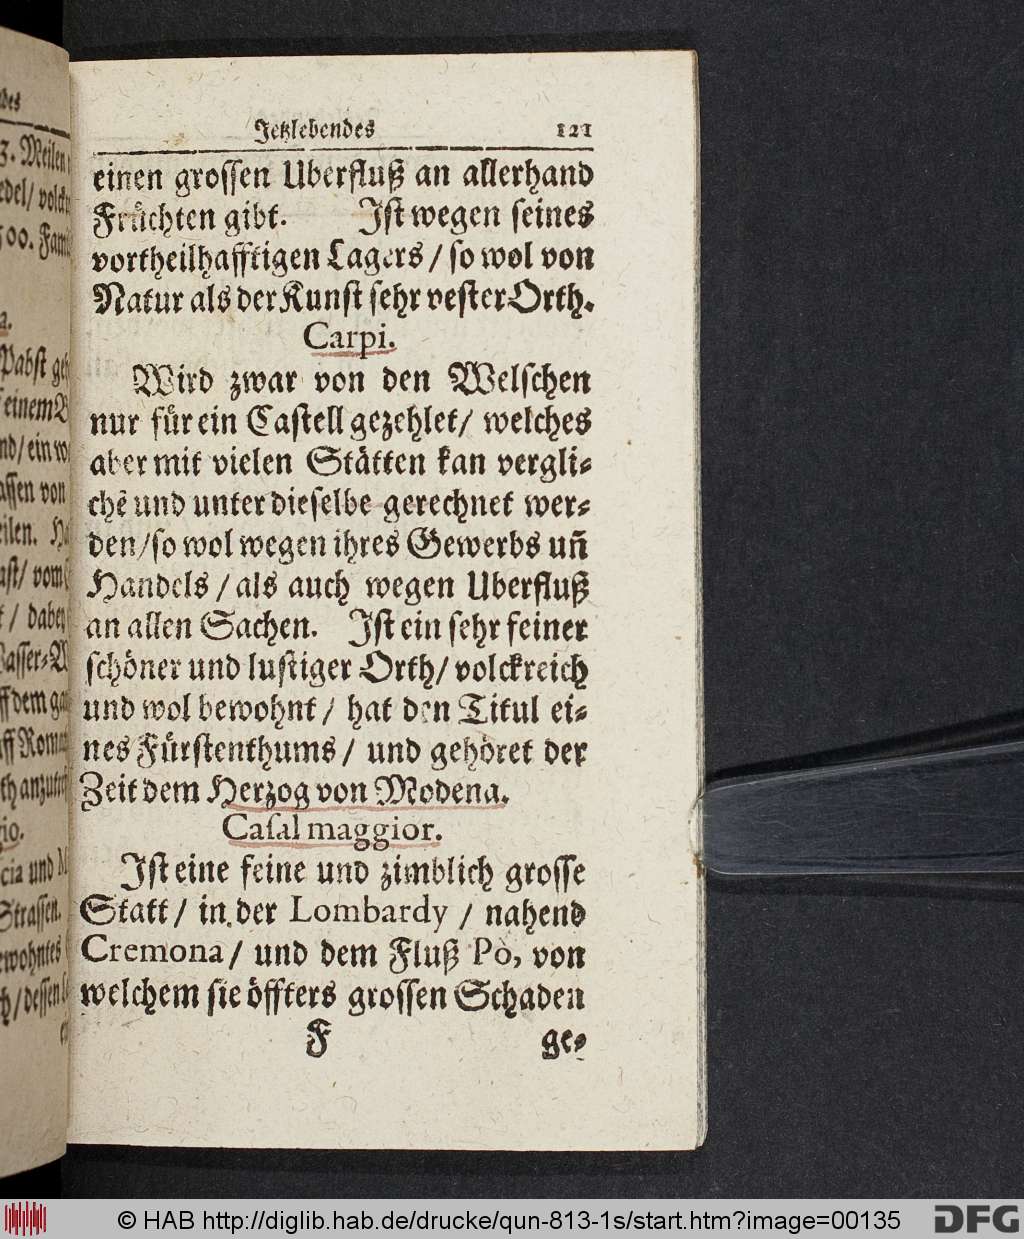 Jetzlebendes 121
einen grossen Uberfluß an allerhand
Früchten gibt. Ist wegen seines
vortheilhafftigen Lagers / so wol von
Natur als der Kunst sehr vester Orth.
Carpi.
Wird zwar von den Welschen
nur für ein Castell gezehlet / welches
aber mit vielen Stätten kan vergli⸗
chẽ und unter dieselbe gerechnet wer⸗
den / so wol wegen ihres Gewerbs uñ
Handels / als auch wegen Uberfluß
an allen Sachen. Ist ein sehr feiner
schöner und lustiger Orth / volckreich
und wol bewohnt / hat den Titul ei⸗
nes Fürstenthums / und gehöret der
Zeit dem Herzog von Modena.
Casal maggior.
Ist eine feine und zimblich grosse
Statt / in der Lombardy / nahend
Cremona / und dem Fluß Pò, von
welchem sie öffters grossen Schaden
F ge⸗
des
3. Meilen
500. Fam
a.
Pabst
einem
von
eilen.
/ vom
/ dabey
asser⸗
dem
Rom
cia und
Strassen.
ewohntes
/ dessen
© HAB http://diglib.hab.de/drucke/qun-813-1s/start.htm?image=00135
DFG